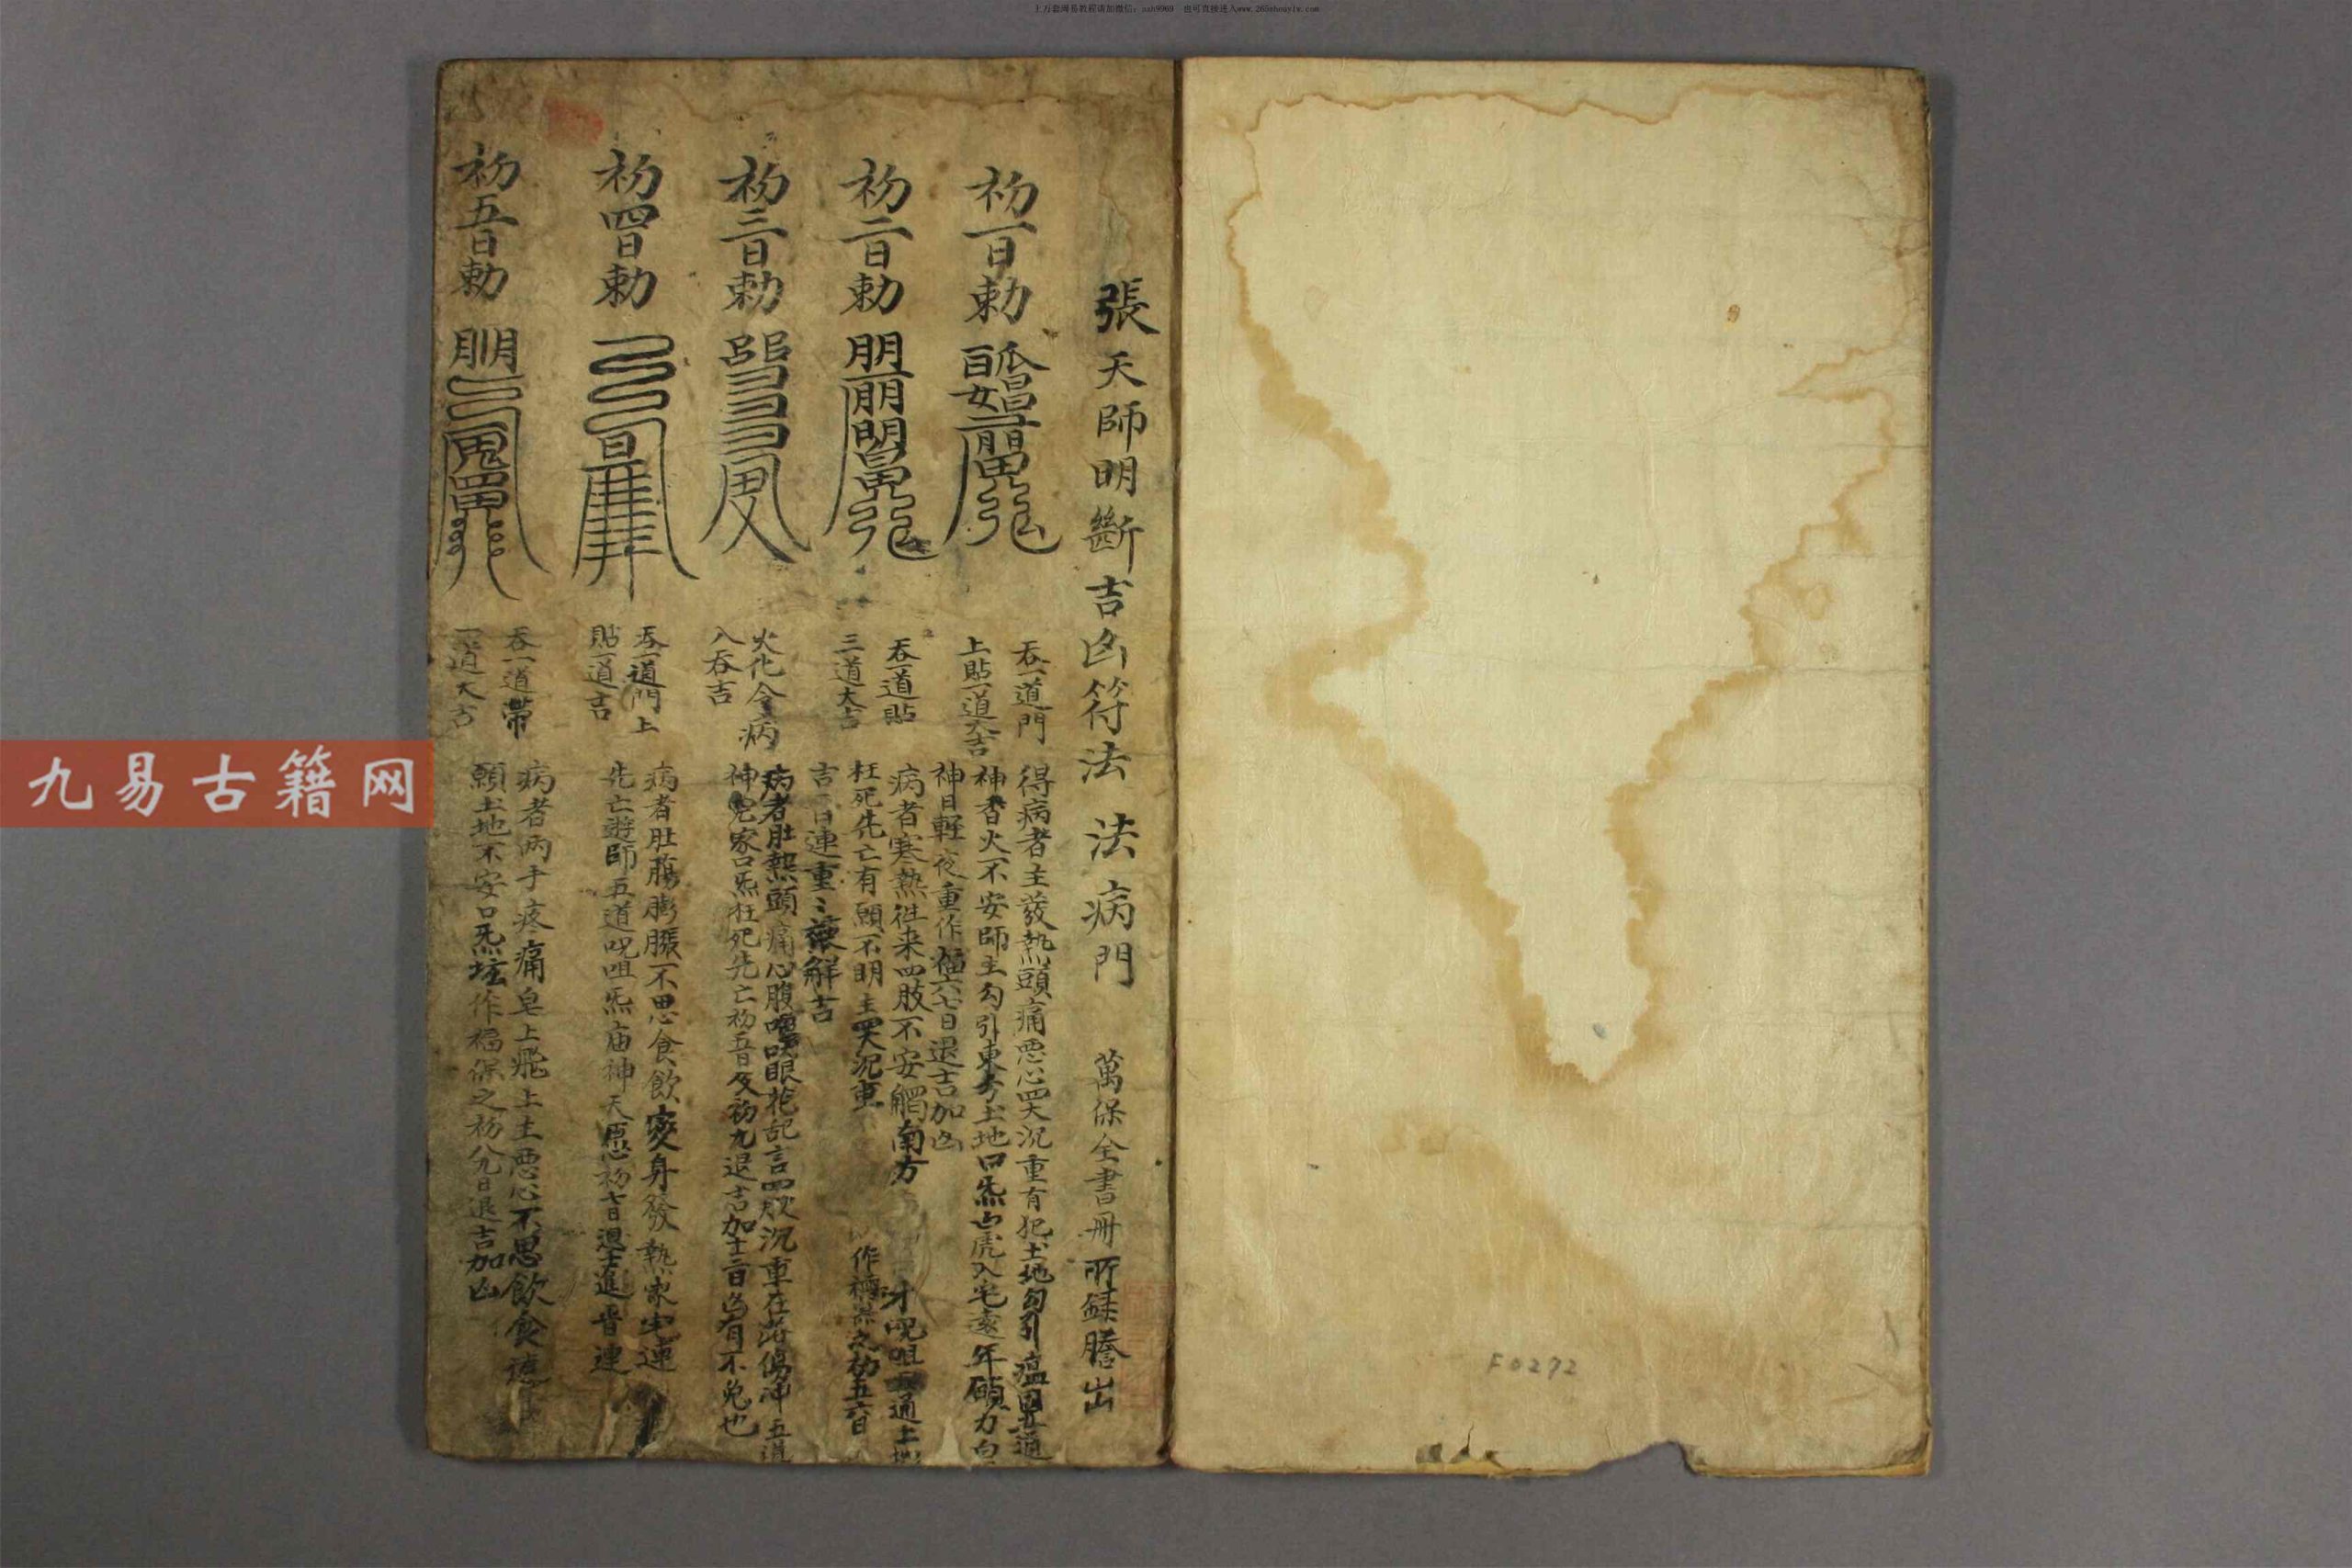 張天師明斷吉凶符法 法病門 萬保全書冊所録謄出
初一日勅
吞一道門
上貼一道大吉
得病者主發熱頭痛悪心四大沉重有犯土地勾引瘟司五道
神香火不安師主勾引東方土地口炁白虎入宅遠年願力白
神日輕夜重作福六七日退吉加凶
初二日勅
吞一道貼
三道大吉
病者寒熱往来四肢不安觸南方 呪咀 通土地
枉死先亡有願不明主四大沉重 作福 之初五六日
吉 日連重〻 解吉
初三日勅
火化令病
人吞吉
病者肚熱頭痛心腹 眼花乱言四肢沉重在 傷神五道
神 家口炁枉死先亡初五日及初九退吉加十二日凶有不免也
初四日勅
吞一道門上
貼一道吉
病者肚腸膨脹不思食飲変身發熱家宅連
先亡遊師五道呪咀炁庙神天愿初七日退 進 連
初五日勅
吞一道帶
一道大吉
病者两手疼痛皂上飛上土悪心不思飲食
願土地不安口炁坛作福保之初八九日退吉加凶
F0272
九易古籍网